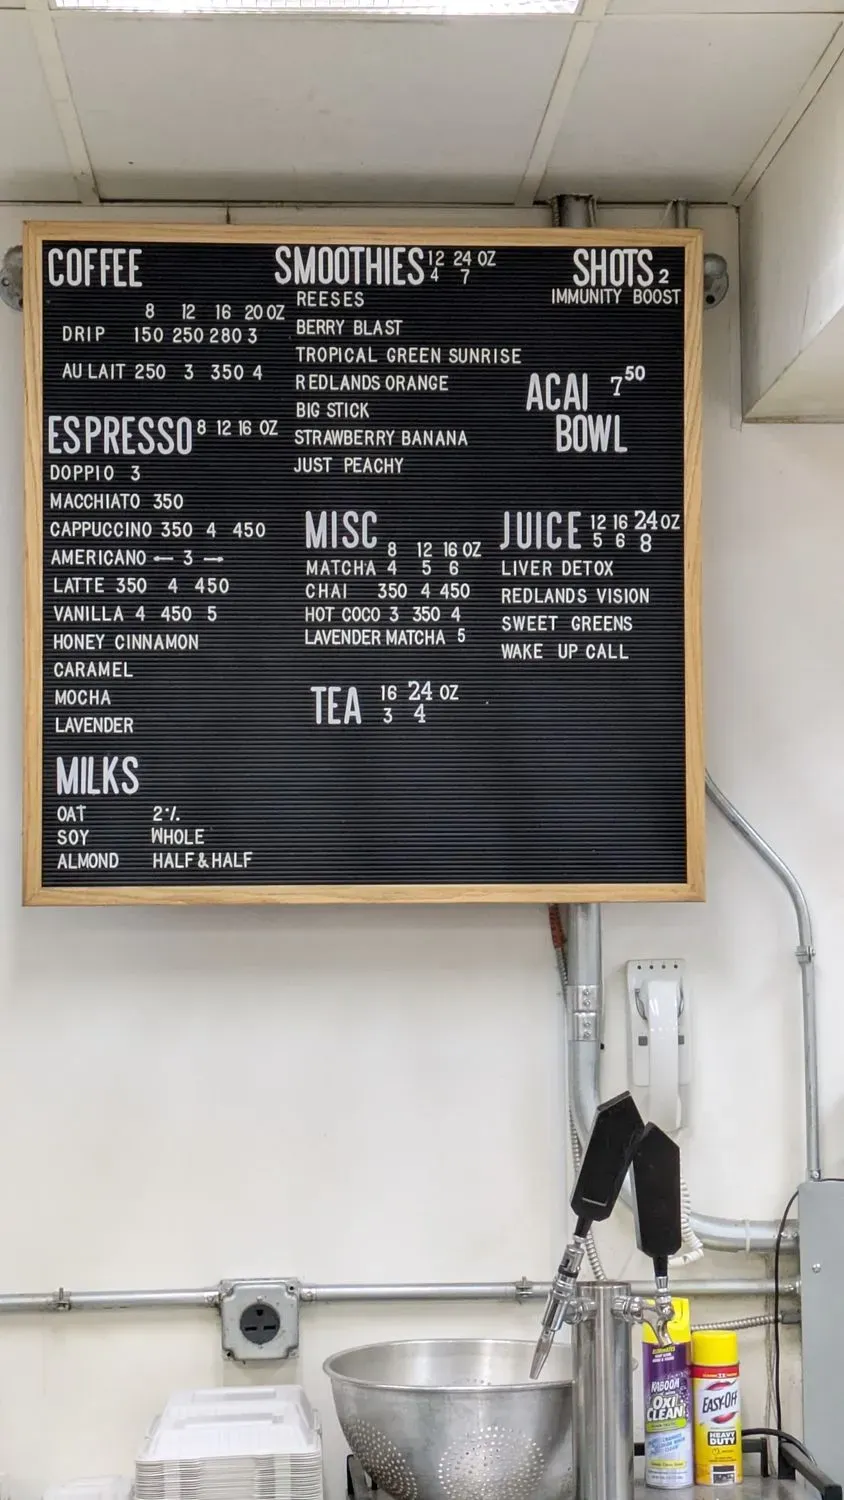 COFFEE
8 12 16 20 OZ
DRIP 150 250 280 3
AU LAIT 250 3 350 4
ESPRESSO 8 12 16 OZ
DOPPIO 3
MACCHIATO 350
CAPPUCCINO 350 4 450
AMERICANO ← 3 →
LATTE 350 4 450
VANILLA 4 450 5
HONEY CINNAMON
CARAMEL
MOCHA
LAVENDER
MILKS
OAT 2%
SOY WHOLE
ALMOND HALF & HALF
SMOOTHIES 12 24 OZ
4 7
REESES
BERRY BLAST
TROPICAL GREEN SUNRISE
REDLANDS ORANGE
BIG STICK
STRAWBERRY BANANA
JUST PEACHY
MISC
8 12 16 OZ
MATCHA 4 5 6
CHAI 350 4 450
HOT COCO 3 350 4
LAVENDER MATCHA 5
TEA 16 24 OZ
3 4
SHOTS 2
IMMUNITY BOOST
ACAI 7 50
BOWL
JUICE 12 16 24 OZ
5 6 8
LIVER DETOX
REDLANDS VISION
SWEET GREENS
WAKE UP CALL
KABOOM
OXI
CLEAN
EASY-OFF
HEAVY
DUTY